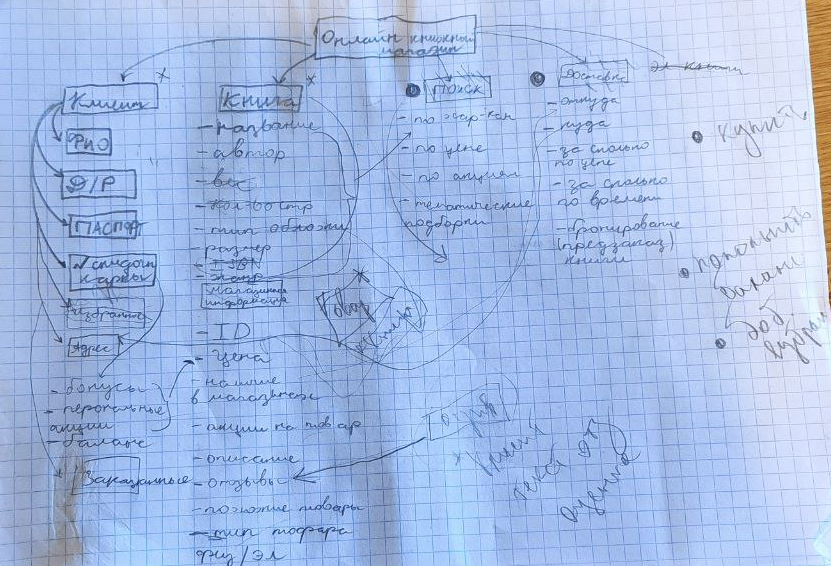 Онлайн книжный
магазин
Клиент
ФИО
Д/Р
ПАСПОРТ
карты
избранные
Адрес
- бонусы
- персональные
акции
- баланс
Заказанные
Книга
- название
- автор
- вес
- кол-во стр
- тип обложки
- размер
- ISBN
- жанр
магазинная
информация
- ID
- цена
- наличие
в магазинах
- акции на товар
- описание
- отзывы
- похожие товары
- тип товара
физ/эл
Поиск
- по хар-кам
- по цене
- по акциям
- тематические
подборки
Доставка
- откуда
- куда
- за сколько
по цене
- за сколько
по времени
- бронирование
(предзаказ)
книги
Эл книги
Товар
отзыв
клиент
текст
оценка
купить
пополнить
баланс